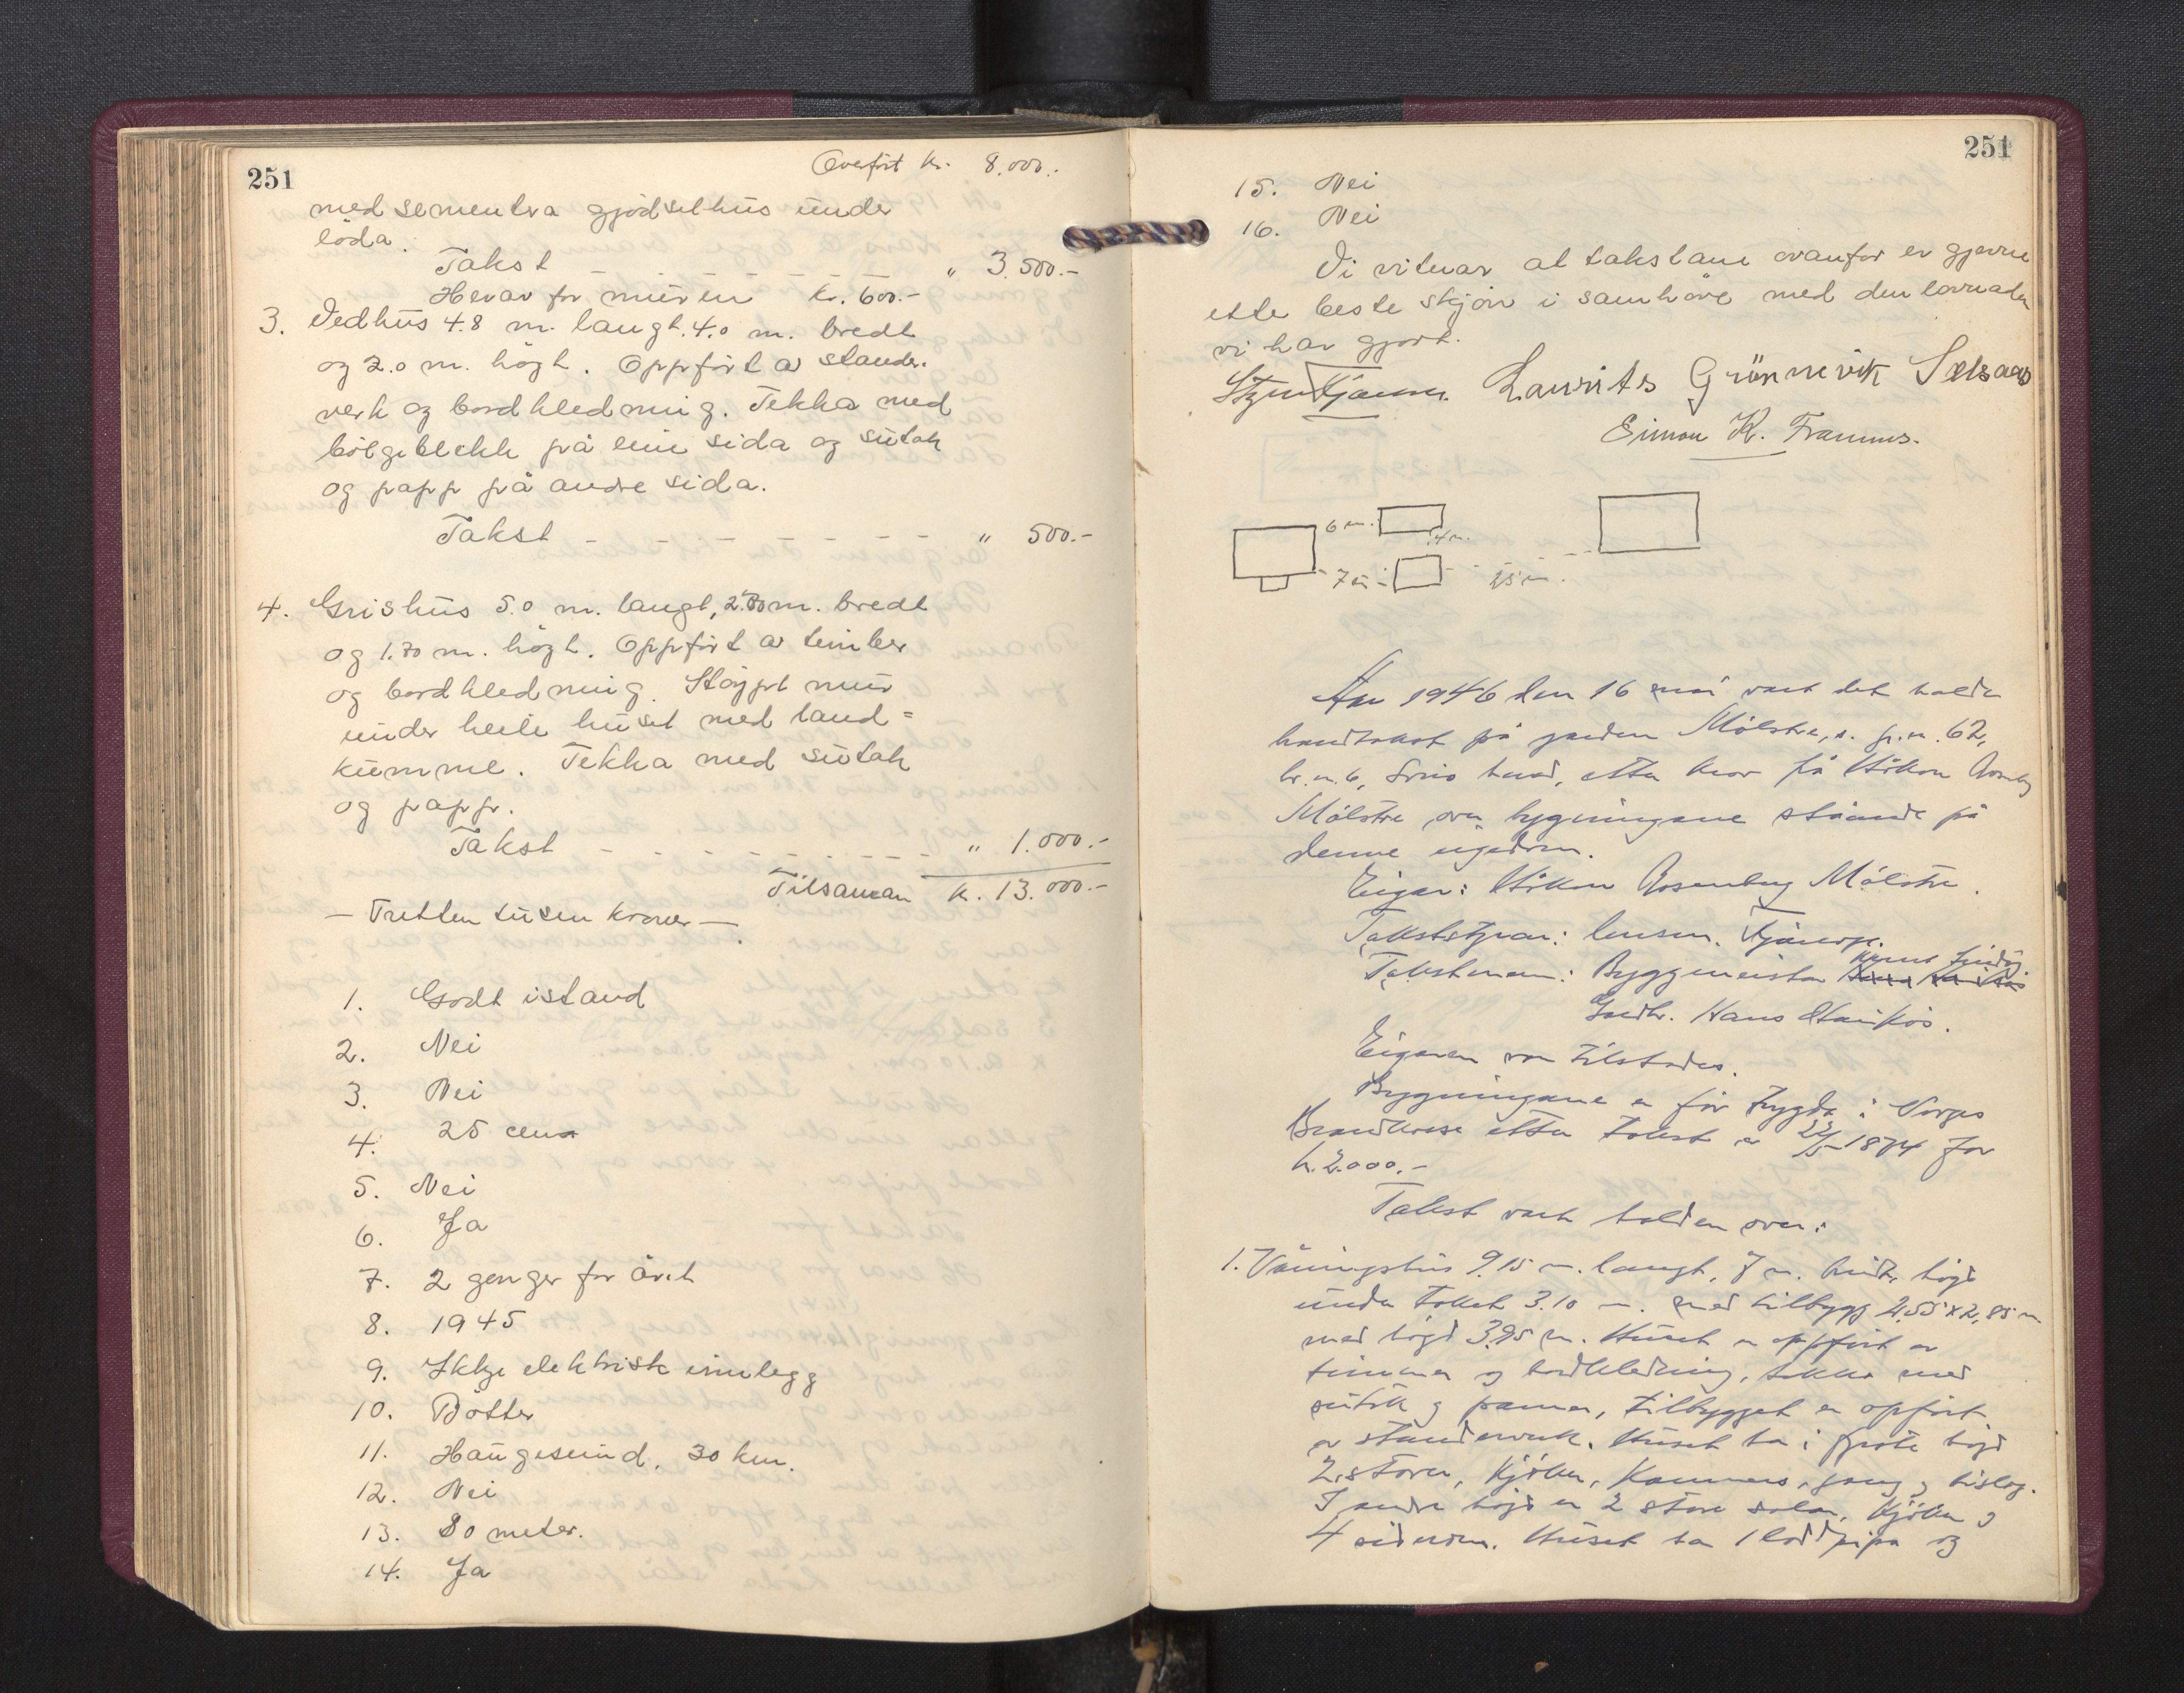 251
Overført kr. 8.000.-
med sementra gjødselhus under
løda.
Takst - - - - - - - " 3.500.-
Herav for muren kr. 600.-
3. Vedhus 4.8 m. langt. 4.0 m. bredt
og 2.0 m. högt. Oppført av stander-
verk og bordkledning. Tekka med
bölgeblekk på eine sida og sutak
og papp på andre sida.
Takst - - - - - - - " 500.-
4. Grishus 5.0 m. langt, m. bredt
og 1.70 m. högt. Oppført av timber
og bordkledning. Støypt mur
under heile huset med land=
kumme. Tekka med sutak
og papp.
Takst - - - - - - - - - " 1.000.-
Tilsaman kr. 13.000.-
- Tretten tusen kroner -
1. Godt istand
2. Nei
3. Nei
4. 25 cm
5. Nei
6. Ja
7. 2 genger for året
8. 1945
9. Ikkje elektrisk innlegg
10. Bötter
11. Haugesund, 30 km.
12. Nei
13. 80 meter.
14. Ja
251
15. Nei
16. Nei
Vi vitnar at takstane ovanfor er gjevne
ette beste skjön i samhöve med den lovnaden
vi har gjort.
Laurits Grönnevik Selsaas
Simon K.
6 m. 4 m.
7 m. 25 m.
År 1946 den 16 mai vart det halde
branntakst på garden Mölstre, g.nr. 62,
br.nr. 6, herad, etter krav frå Håkon
Mölstre over bygningane ståande på
denne eigedom.
Eigar: Håkon Rosenberg Mölstre.
Takststyrar: lensm. Kjærrgr.
Takstmenn: Byggmeister
Gardbr. Hans
Eigaren var tilstades.
Bygningane er før trygda i Norges
Brandkasse etter takst av 22/5-1874 for
kr. 2.000.-
Takst vart halden over:
1. Våningshus 9.15 m. langt, 7 m. breidt, högd
under taket 3.10 m. med tilbygg 2,55 x 2,85 m.
med högd 3.95 m. Huset er oppført av
timmer og bordkledning, tekka med
sutak og panner, tilbygget er oppført
av standerverk. Huset har i fyrste högd
2 stover, kjöken, kammers, gang og bislag.
I andre högd er 2 store salar, kjöken og
4 siderom. Huset har 1 lodd pipa og